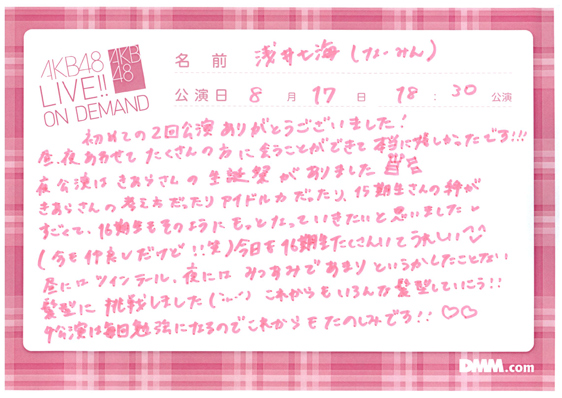 AKB48
LIVE!!
ON DEMAND
AKB
48
名前 浅井七海(なーみん)
公演日 8月17日 18:30公演
初めての2回公演ありがとうございました!
昼、夜あわせてたくさんの方に会うことができて本当に嬉しかったです!!!
夜公演はきあらさんの生誕祭がありました
きあらさんの考え方だったりアイドル力だったり、15期生さんの絆が
すごくて、16期生もそのようにもっとなっていきたいと思いました
(今も仲良しだけど!!笑)今日も16期生たくさんいてうれしい
昼にはツインテール、夜にはみつあみであまりというかしたことない
髪型に挑戦しました これからもいろんな髪型していこう!!
公演は毎回勉強になるのでこれからもたのしみです!!♡♡
DMM.com